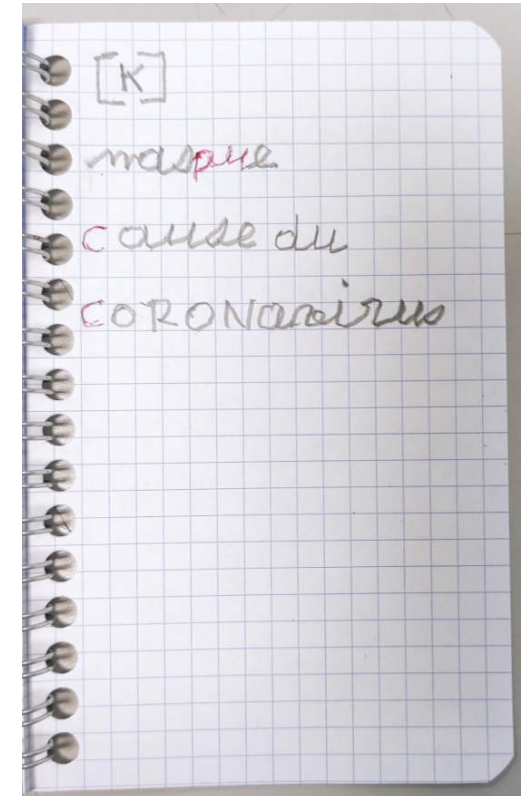 [K]
masque
cause du
CORONavirus